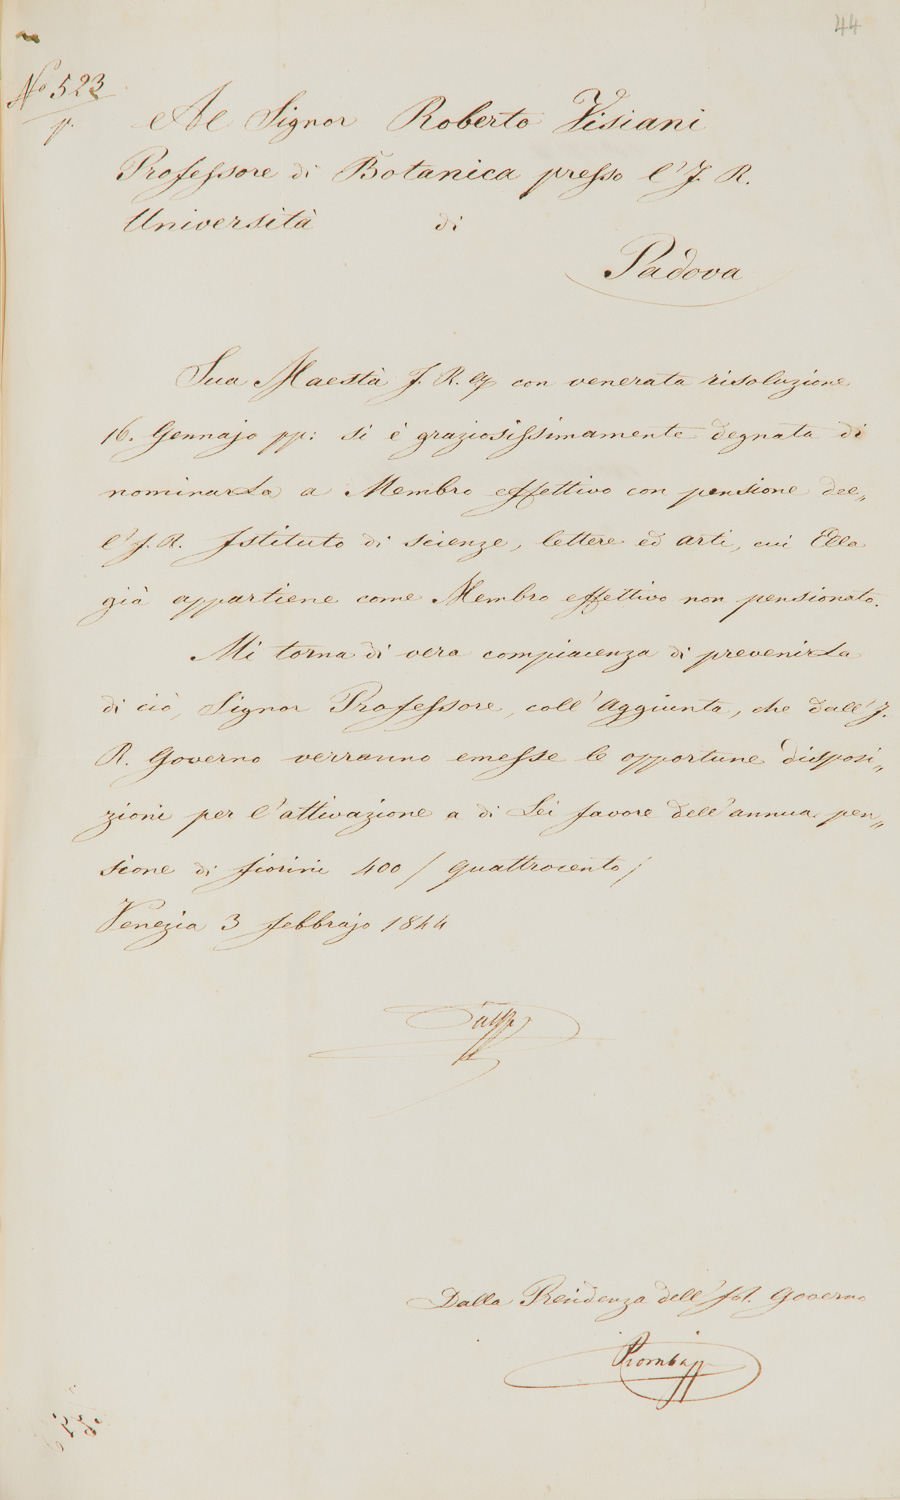 44
No. 523
p.
Al Signor Roberto Visiani
Professore di Botanica presso l'I. R.
Università di
Padova
Sua Maestà I. R. A. con venerata risoluzione
16. Gennajo pp: si è graziosissimamente degnata di
nominarLa a Membro effettivo con pensione del„
l'I. R. Istituto di scienze, lettere ed arti, cui Ella
già appartiene come Membro effettivo non pensionato.
Mi torna di vera compiacenza di prevenirLa
di ciò, Signor Professore, coll'aggiunta, che dall'I.
R. Governo verranno emesse le opportune disposi„
zioni per l'attivazione a di Lei favore dell'annua pen„
sione di fiorini 400 / quattrocento /
Venezia 3 febbrajo 1844
Dalla Presidenza dell' Governo